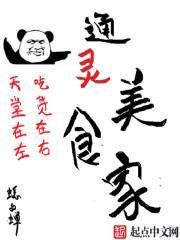 通灵美食家
天堂在左
吃货在右
起点中文网